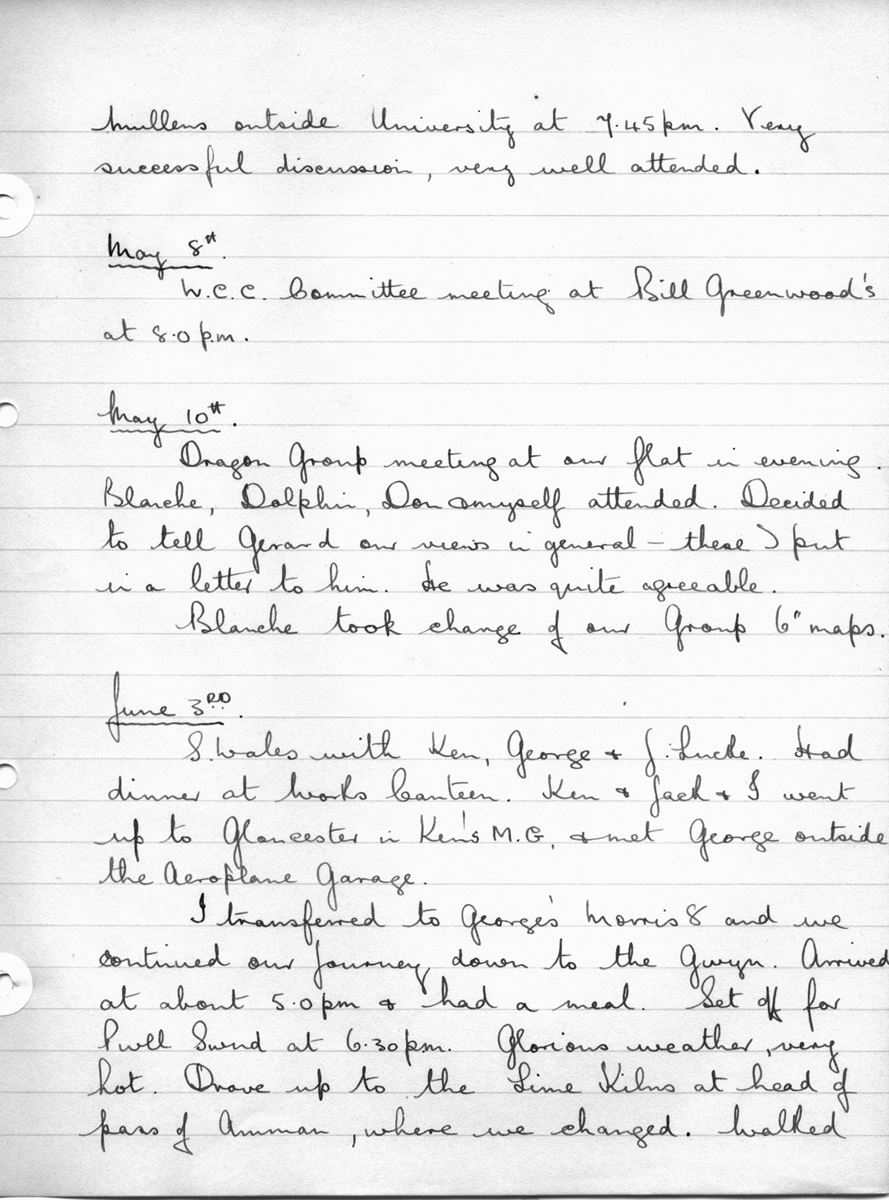 Mullens outside University at 7.45pm. Very
successful discussion, very well attended.
May 8th.
W.C.C. Committee meeting at Bill Greenwood's
at 8.0 p.m.
May 10th.
Dragon Group meeting at our flat in evening.
Blanche, Dolphin, Don & myself attended. Decided
to tell Gerard our views in general – these I put
in a letter to him. He was quite agreeable.
Blanche took charge of our Group 6" maps.
June 3RD.
S. Wales with Ken, George & J. Lucke. Had
dinner at Works Canteen. Ken & Jack & I went
up to Gloucester in Ken's M.G, & met George outside
the Aeroplane Garage.
I transferred to George's Morris 8 and we
continued our journey down to the Gwyn. Arrived
at about 5.0pm & had a meal. Set off for
Pwll Swnd at 6.30pm. Glorious weather, very
hot. Drove up to the Lime Kilns at head of
pass of Amman, where we changed. Walked